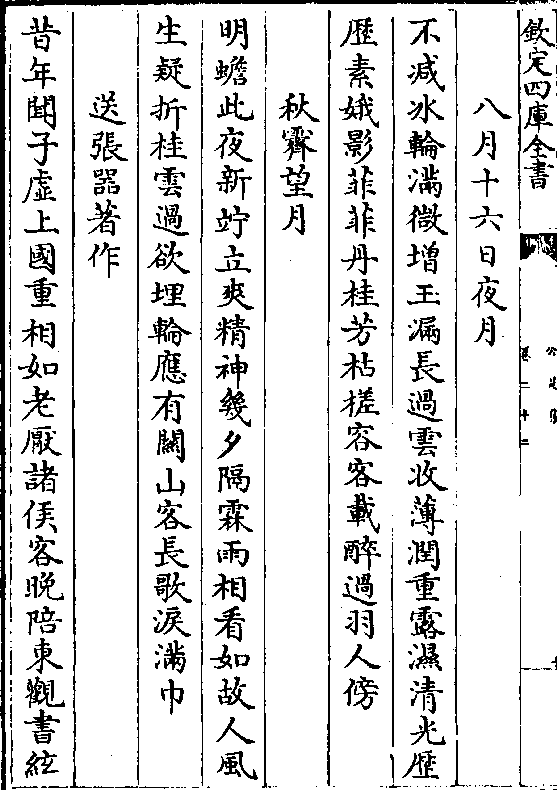 欽定四庫全書
卷二十二
八月十六日夜月
不减氷輪滿微增玉漏長過雲收薄潤重露濕清光歴
歴素娥影菲菲丹桂芳枯槎容客載醉過羽人傍
秋霽望月
明蟾此夜新竚立爽精神幾夕隔霖雨相看如故人風
生疑折桂雲過欲埋輪應有關山客長歌淚滿巾
送張器著作
昔年聞子虚上國重相如老厭諸侯客晚陪東觀書絃